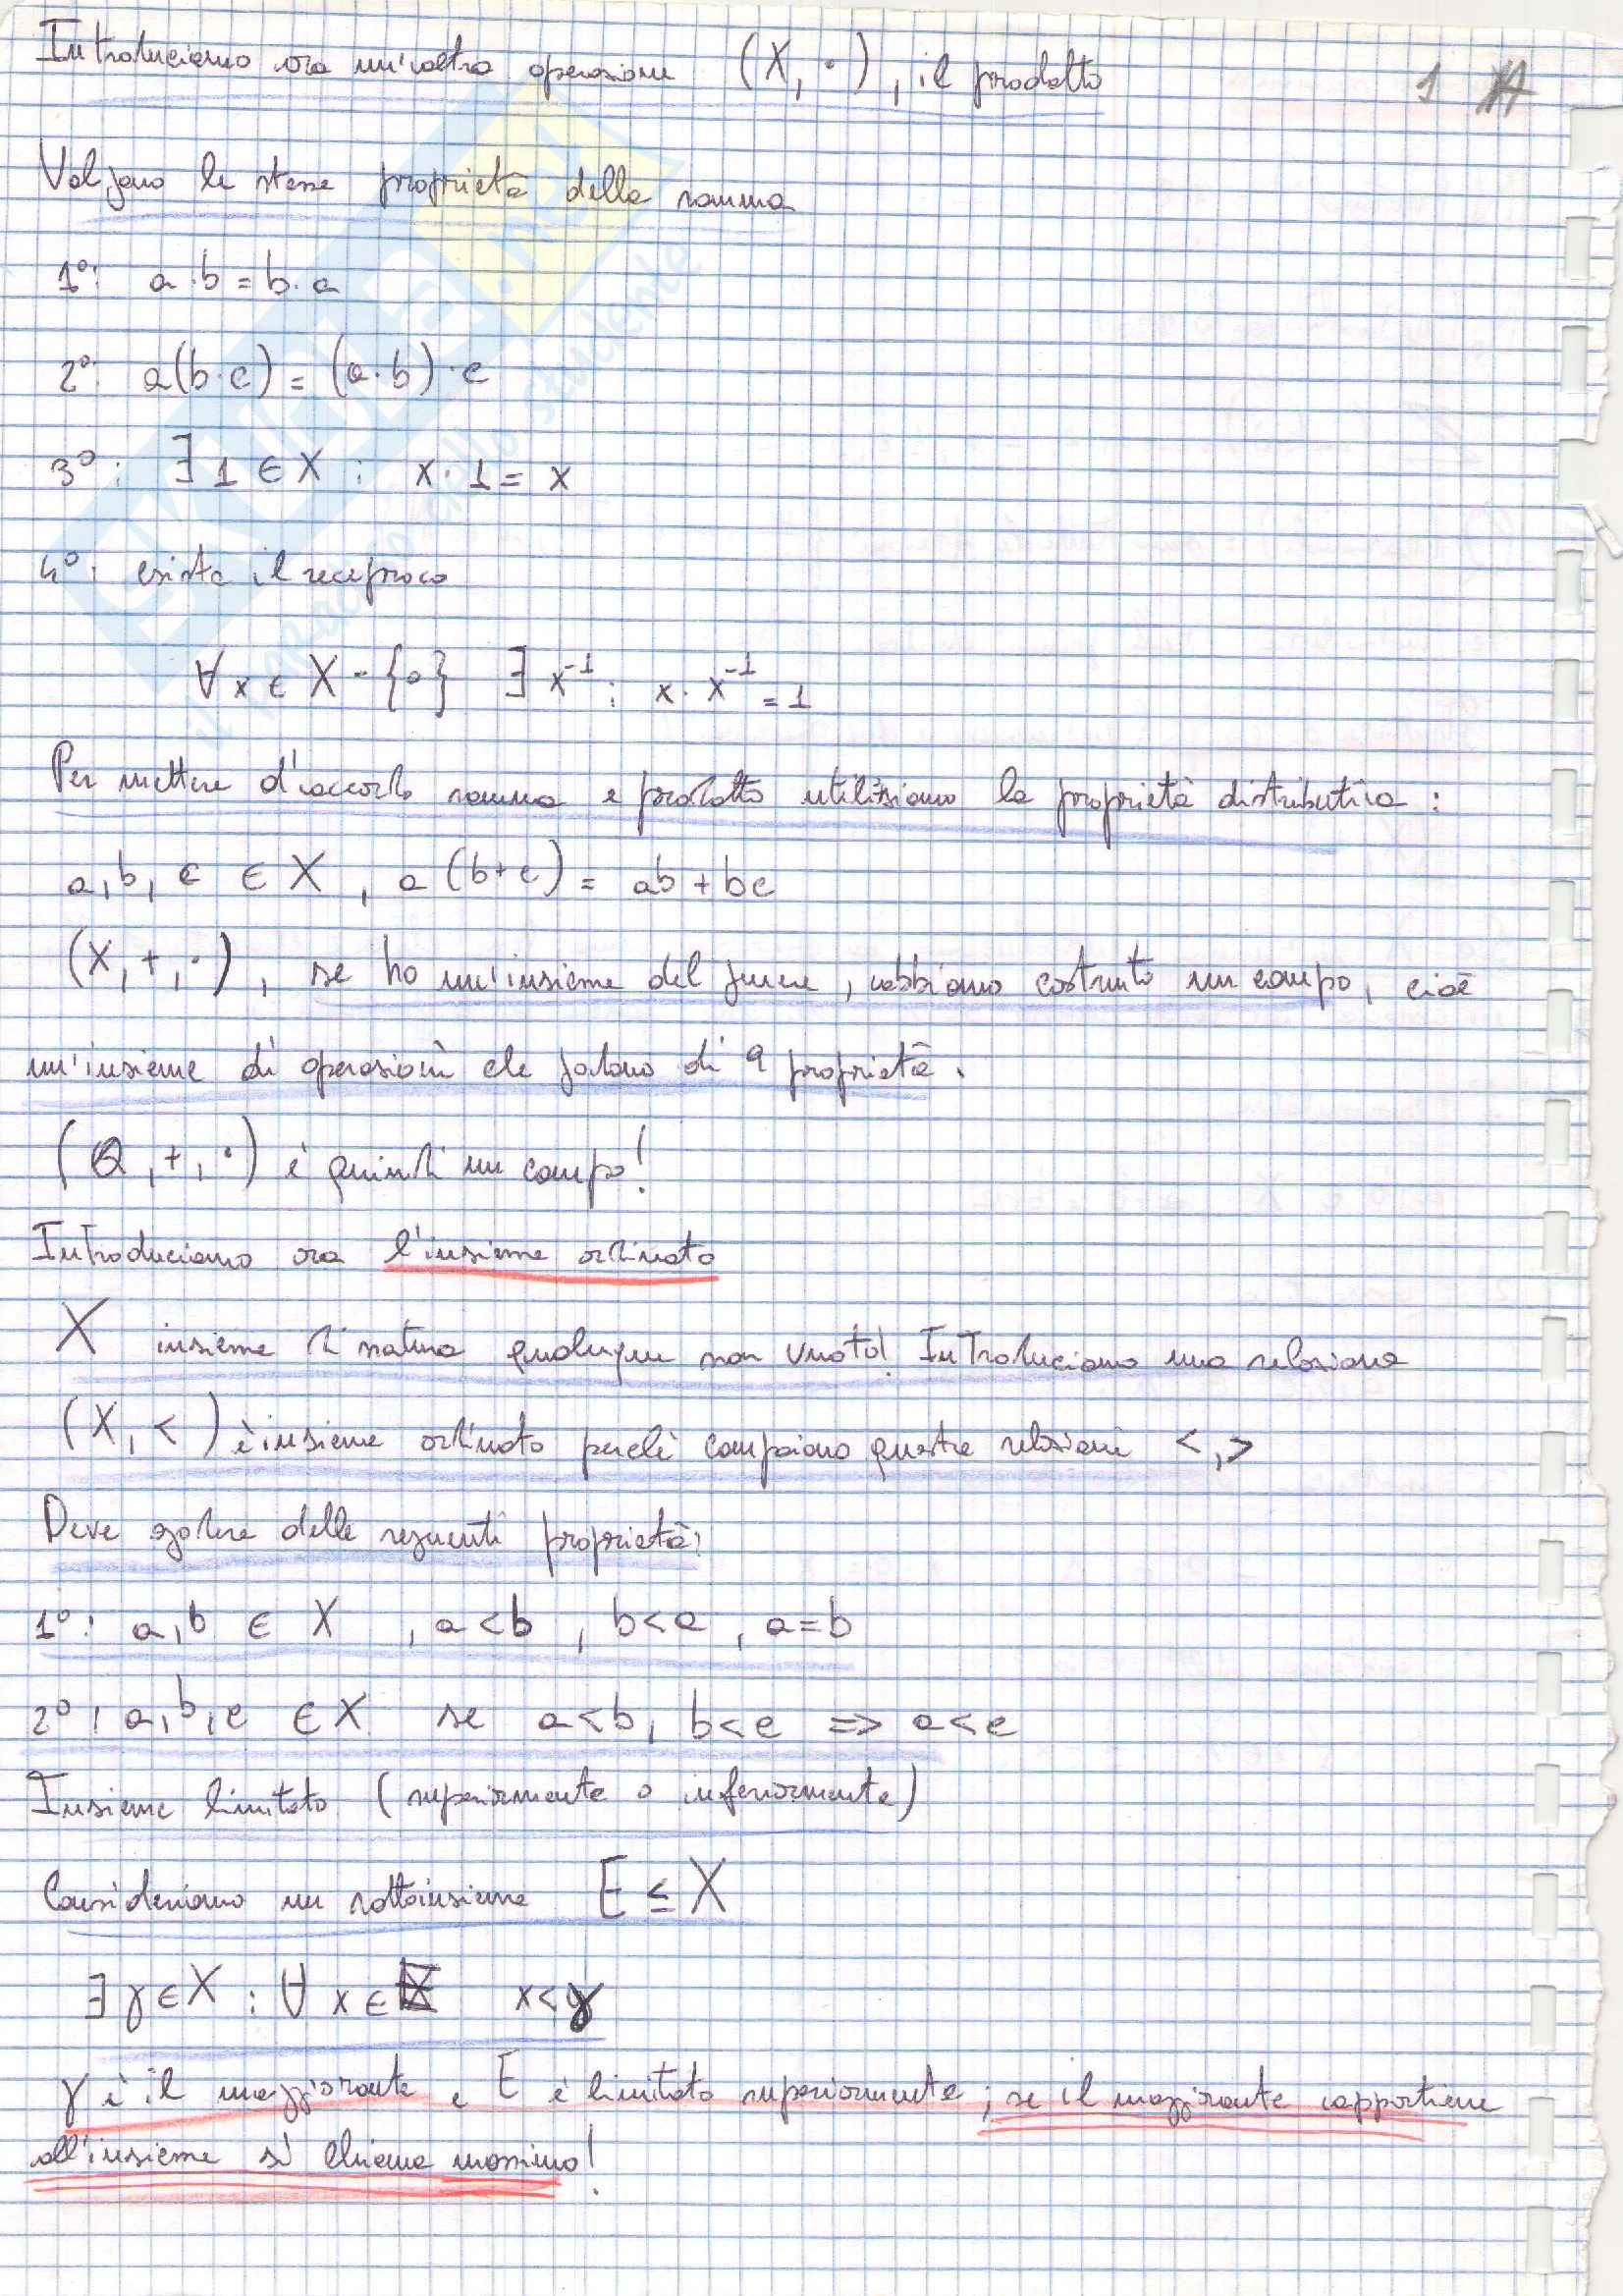 Introduciamo ora un'altra operazione (X, ·), il prodotto
1
Valgono le stesse proprietà della somma
1°: a·b = b·a
2°: a(b·c) = (a·b)·c
3°: ∃ 1 ∈ X : x·1 = x
4°: esiste il reciproco
∀ x ∈ X - {0} ∃ x⁻¹ : x·x⁻¹ = 1
Per mettere d'accordo somma e prodotto utilizziamo la proprietà distributiva :
a, b, c ∈ X , a (b+c) = ab + bc
(X, +, ·) , se ho un'insieme del genere, abbiamo costruito un campo, cioè
un'insieme di operazioni che godono di 9 proprietà.
(Q, +, ·) è quindi un campo!
Introduciamo ora l'insieme ordinato
X insieme di natura qualunque non vuoto! Introduciamo una relazione
(X, <) è insieme ordinato perchè compaiono queste relazioni <, >
Deve godere delle seguenti proprietà:
1°: a, b ∈ X , a<b , b<a , a=b
2°: a, b, c ∈ X se a<b, b<c => a<c
Insieme limitato (superiormente o inferiormente)
Consideriamo un sottoinsieme E ⊆ X
∃ γ ∈ X : ∀ x ∈ E x<γ
γ è il maggiorante e E è limitato superiormente; se il maggiorante appartiene
all'insieme si chiama massimo!
il paradiso dello studente